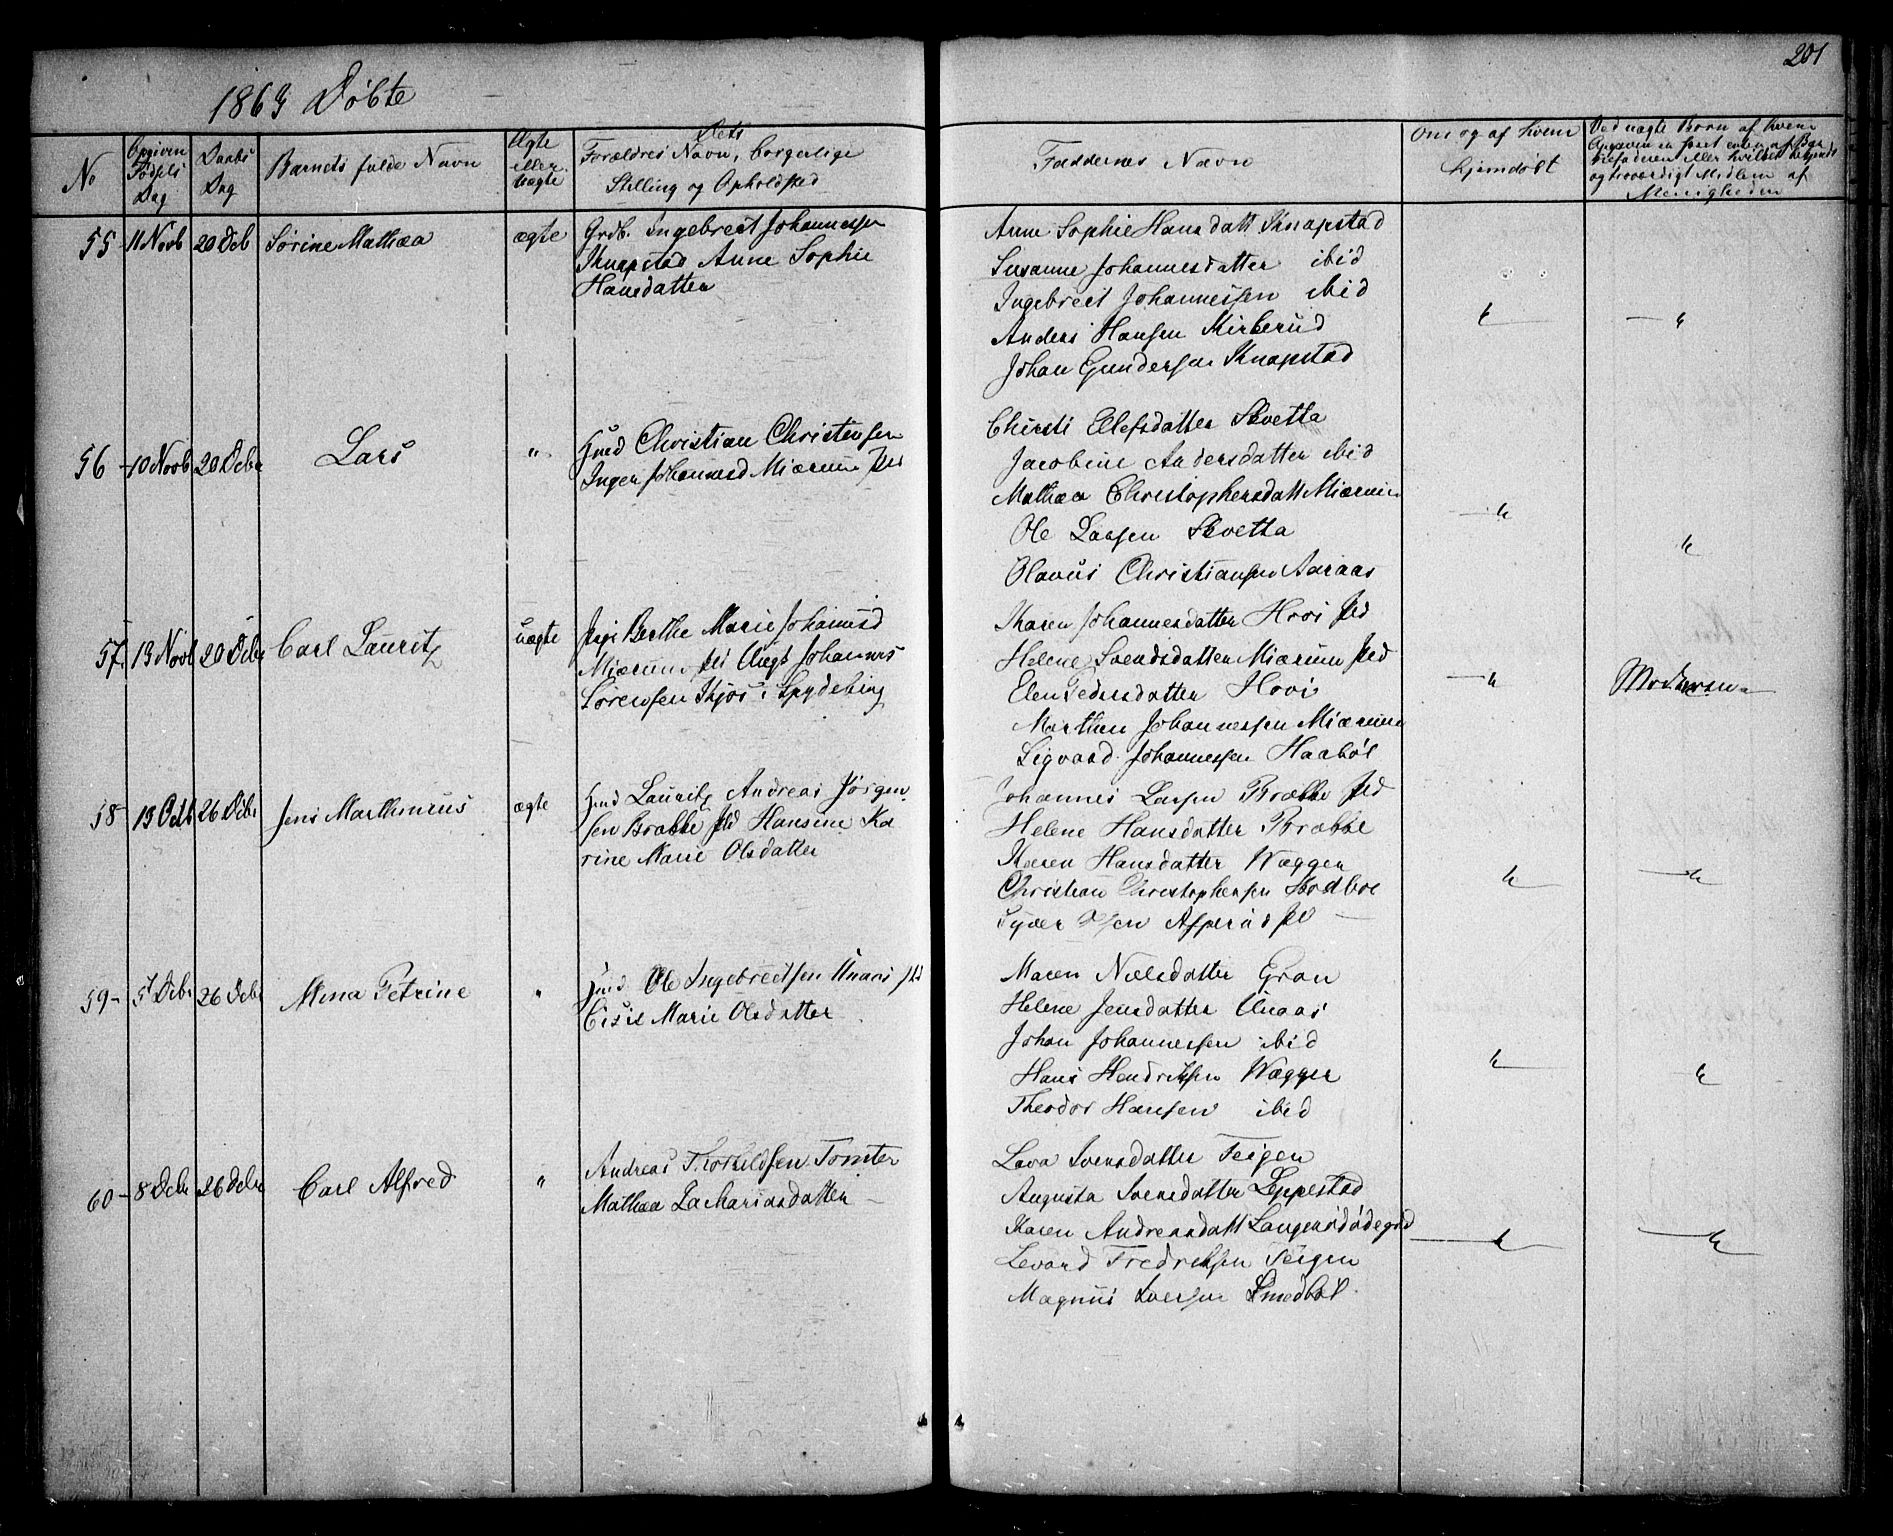 201
1863 Døbte
No
Opgiven Fødsels Dag
Daabs Dag
Barnets fulde Navn
Ægte eller Uægte
Dets
Forældres Navn, borgerlige
Stilling og Opholdsted
Faddernes Navn
Om og af hvem
hjemdøbt
Ved uægte Børn af hvem
Menigheden
55 11 Novb 20 Deb Sørine Mathæa ægte Grdb. Ingebret Johannessen
Knapstad Anne Sophie
Hansdatter
Anne Sophie Hansdatt Knapstad
Susanne Johannesdatter ibid
Ingebret Johannessen ibid
Anders Hansen Mirberud
Johan Gundersen Knapstad
56 10 Novb 20 Debr Lars " Hmd Christian Christensen
Inger Johannesd Miærum
Chirsti Elefsdatter Skvetta
Jacobine Andersdatter ibid
Mathæa Christophersdatt Miærum
Ole Larsen Skvetta
Olavus Christiansen Aaraas
57. 13 Novb 20 Debr Carl Lauritz uægte Pige Berthe Marie Johannesd
Miærum Ungk Johannes
Sørensen Skjøs i Spydeberg
Karen Johannesdatter Hovi
Helene Svendsdatter Miærum
Elen Pedersdatter Hovi
Marthin Johannessen Miærum
Sigvard Johannessen Haabøl
Moderen
58 13 Octb 26 Debr Jens Marthinius ægte Hmd Lauritz Andreas Jørgen
sen Brække Hansine Ka
rine Marie Olsdatter
Johannes Larsen Brække
Helene Hansdatter Brække
Karen Hansdatter Wægger
Christian Christophersen
Syver Asperud
59 5 Debr 26 Debr Mina Petrine " Hmd Ole Ingebretsen Unaas
Cisil Marie Olsdatter
Maren Nielsdatter Gran
Helene Jensdatter Unaas
Johan Johannessen ibid
Hans Hendriksen Wægger
Theodor Hansen ibid
60 8 Debr 26 Debr Carl Alfred " Andreas Thorkildsen Tomter
Mathæa Zachariasdatter
Lava Svensdatter Teigen
Augusta Svensdatter Leppestad
Karen Andreasdatt
Levard Fredriksen Teigen
Magnus Iversen Smedbøl